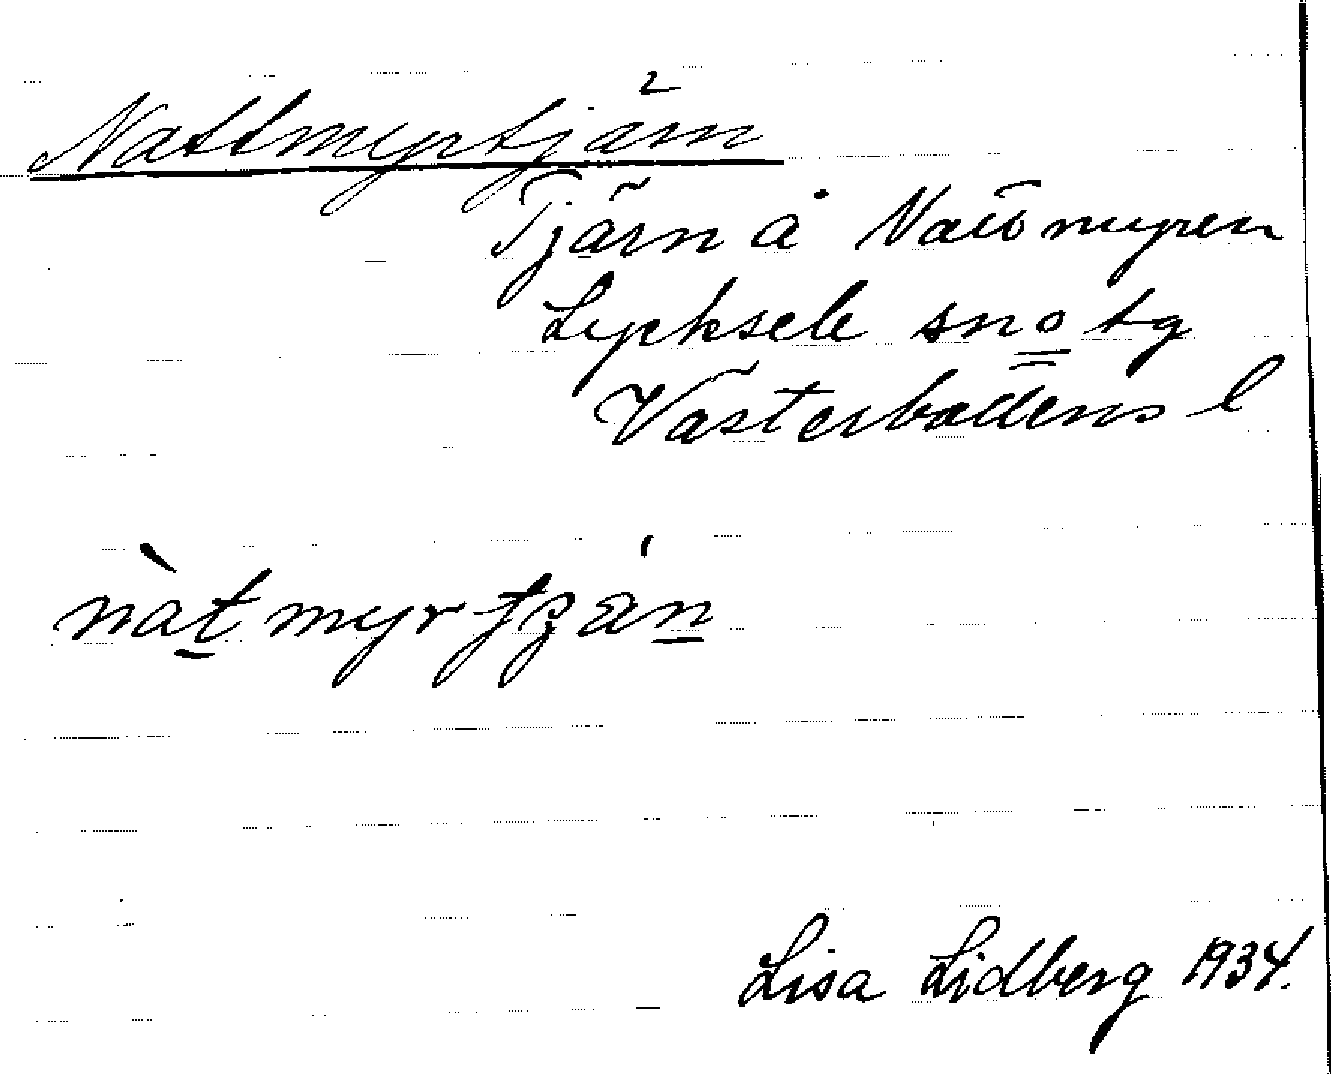 Nattmyrtjärn
Tjärn å Nattmyren
Lycksele sn o tg
Västerbottens l
nàtmyr
Lisa Lidberg 1934.